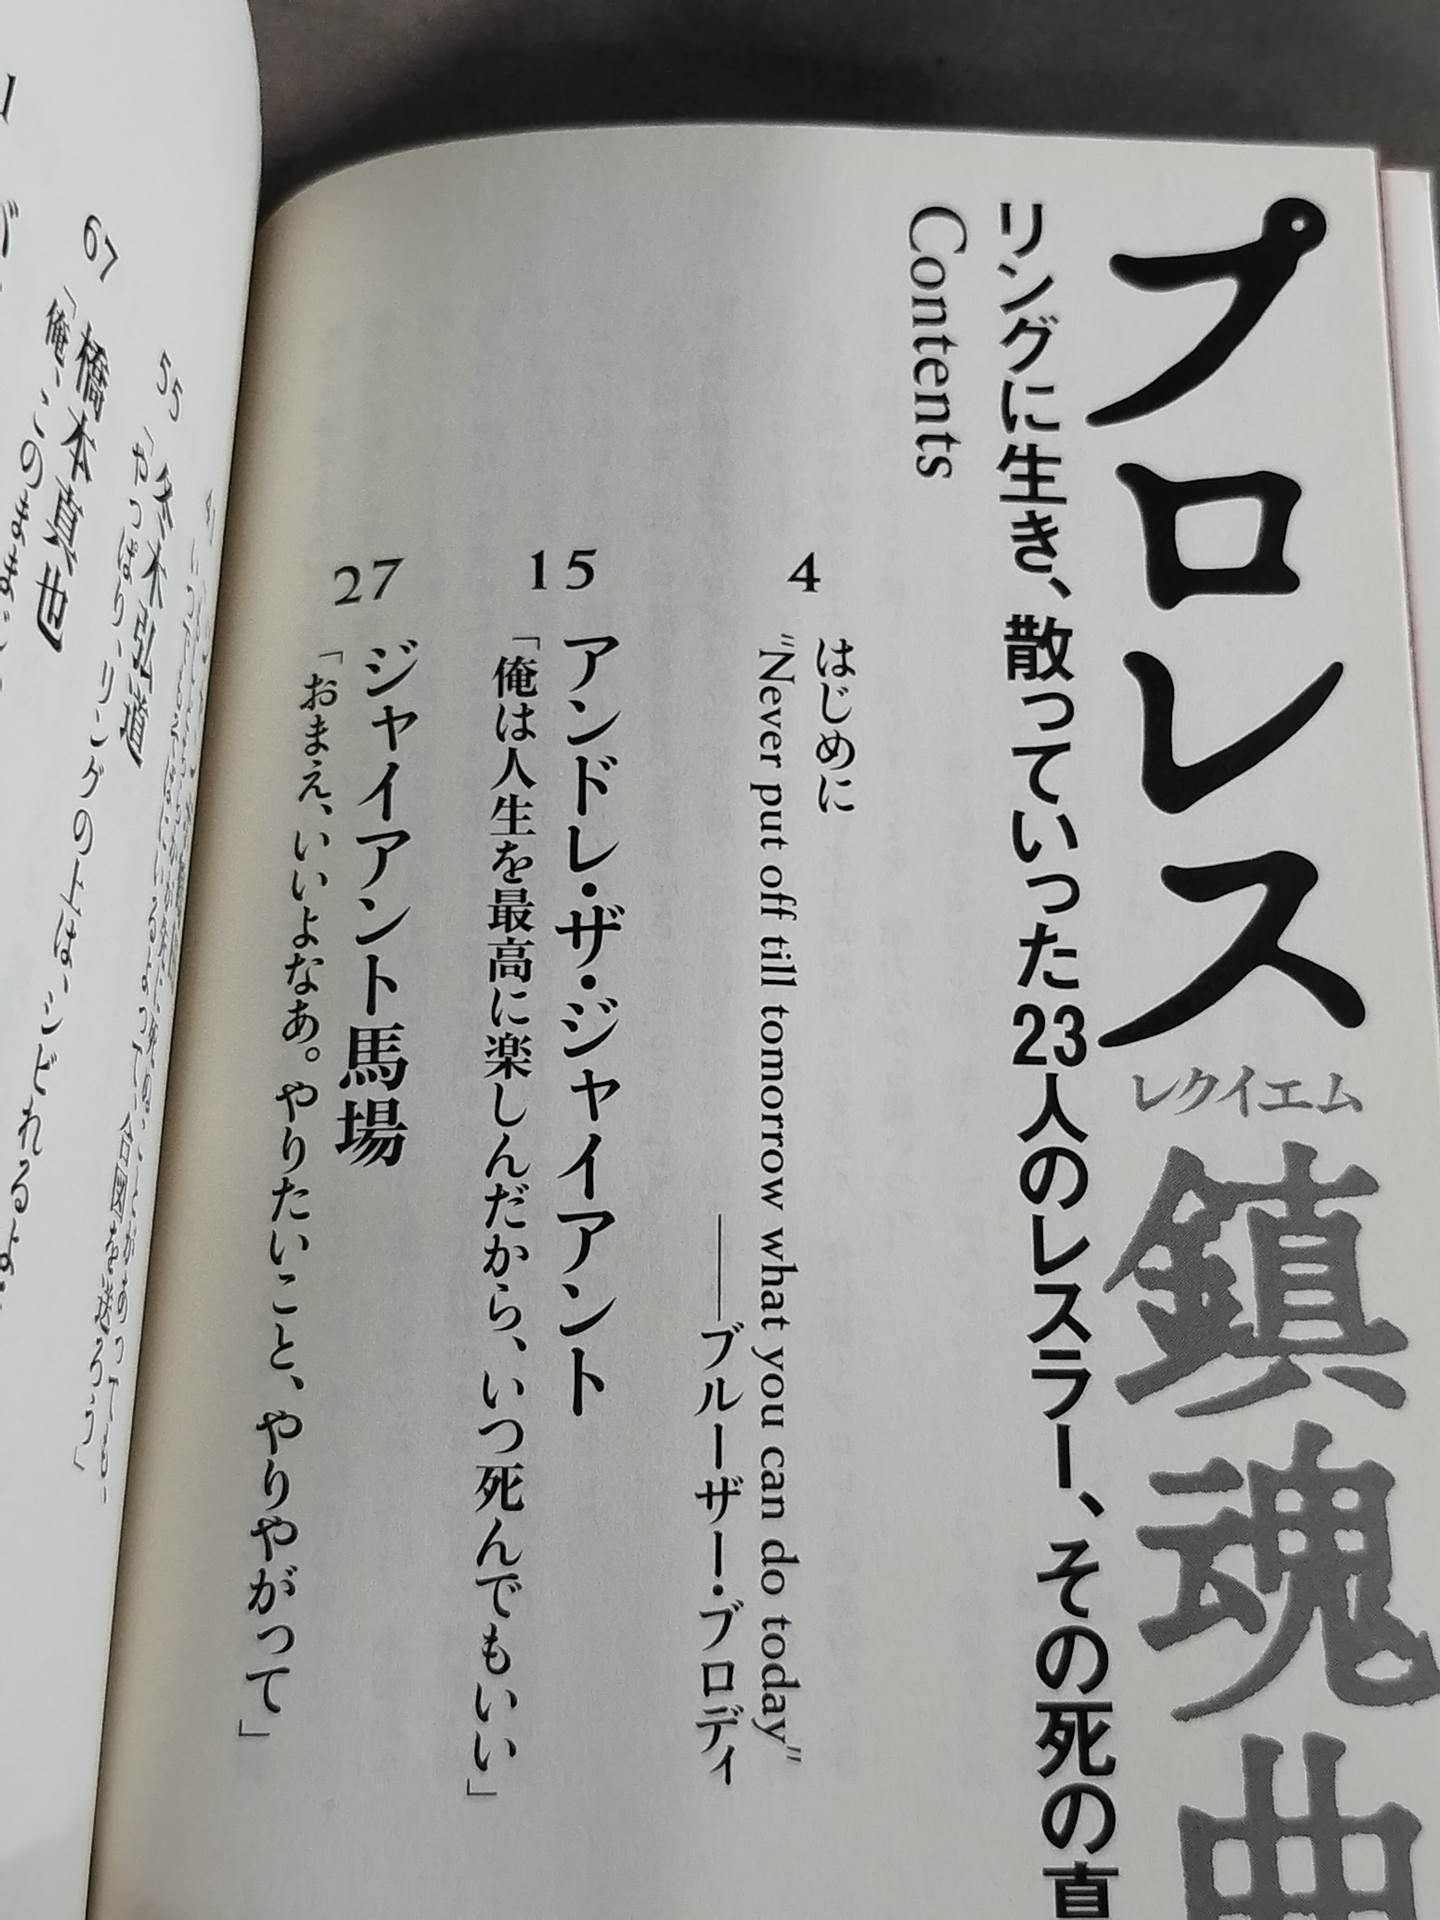 プロレス
レクイエム
鎮魂曲
リングに生き、散っていった23人のレスラー、その死の真
Contents
4
はじめに
"Never put off till tomorrow what you can do today"
——ブルーザー・ブロディ
15
アンドレ・ザ・ジャイアント
「俺は人生を最高に楽しんだから、いつ死んでもいい」
27
ジャイアント馬場
「おまえ、いいよなあ。やりたいこと、やりやがって」
55
冬木弘道
「やっぱり、リングの上は、シビれるよ
67
橋本真也
「俺、このまま